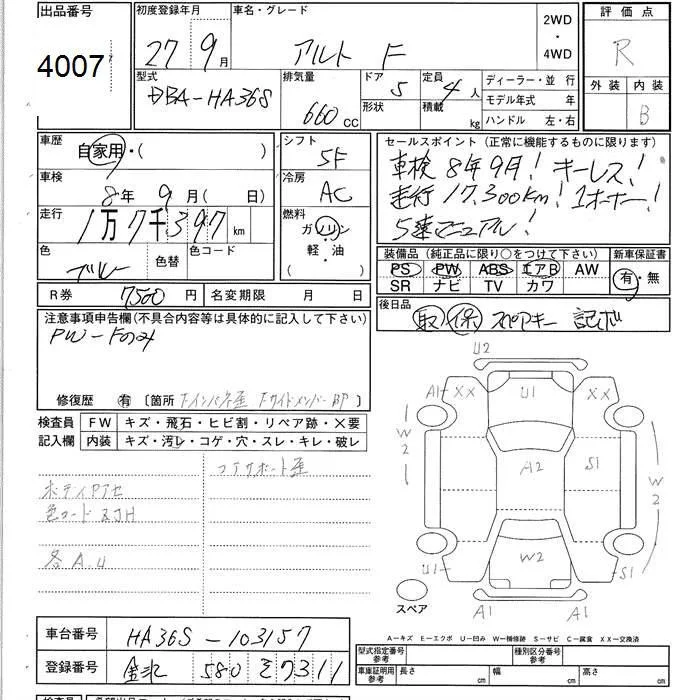 出品番号
4007
初度登録年月
27 9月
車名・グレード
アルト F
2WD
・
4WD
評価点
R
型式
DBA-HA36S
排気量
660 cc
ドア
5
形状
定員
4人
積載
kg
ディーラー・並行
モデル年式 年
ハンドル 左・右
外装
内装
B
車歴
自家用・( )
車検
8年 9月( 日)
走行
1万7千397 km
色
ブルー
色替
色コード
シフト
5F
冷房
AC
燃料
ガソリン
軽・油
( )
セールスポイント (正常に機能するものに限ります)
車検 8年9月! キーレス!
走行 17,300km! 1オーナー!
5速マニュアル!
装備品 (純正品に限り○をつけて下さい)
PS PW ABS エアB AW
SR ナビ TV カワ
新車保証書
有・無
R券
7500円
名変期限 月 日
後日品
取 保 スペアキー 記ボ
注意事項申告欄(不具合内容等は具体的に記入して下さい)
PW-Fのみ
修復歴 有 〔箇所
検査員
記入欄
FW
キズ・飛石・ヒビ割・リペア跡・×要
内装
キズ・汚レ・コゲ・穴・スレ・キレ・破レ
コアサポート歪
ボディアセ
色コード ZJH
各A.U
U2
A1 XX U1 XX
W2
A2
S1
W2
W2
U1
S1
スペア
A1
A1
A-キズ E-エクボ U-凹み W-補修跡 S-サビ C-腐食 XX-交換済
車台番号
HA36S-103157
登録番号
580 7311
型式指定番号
参考
種別区分番号
参考
車庫証明用
参考
長さ cm
幅 cm
高さ cm
検査員